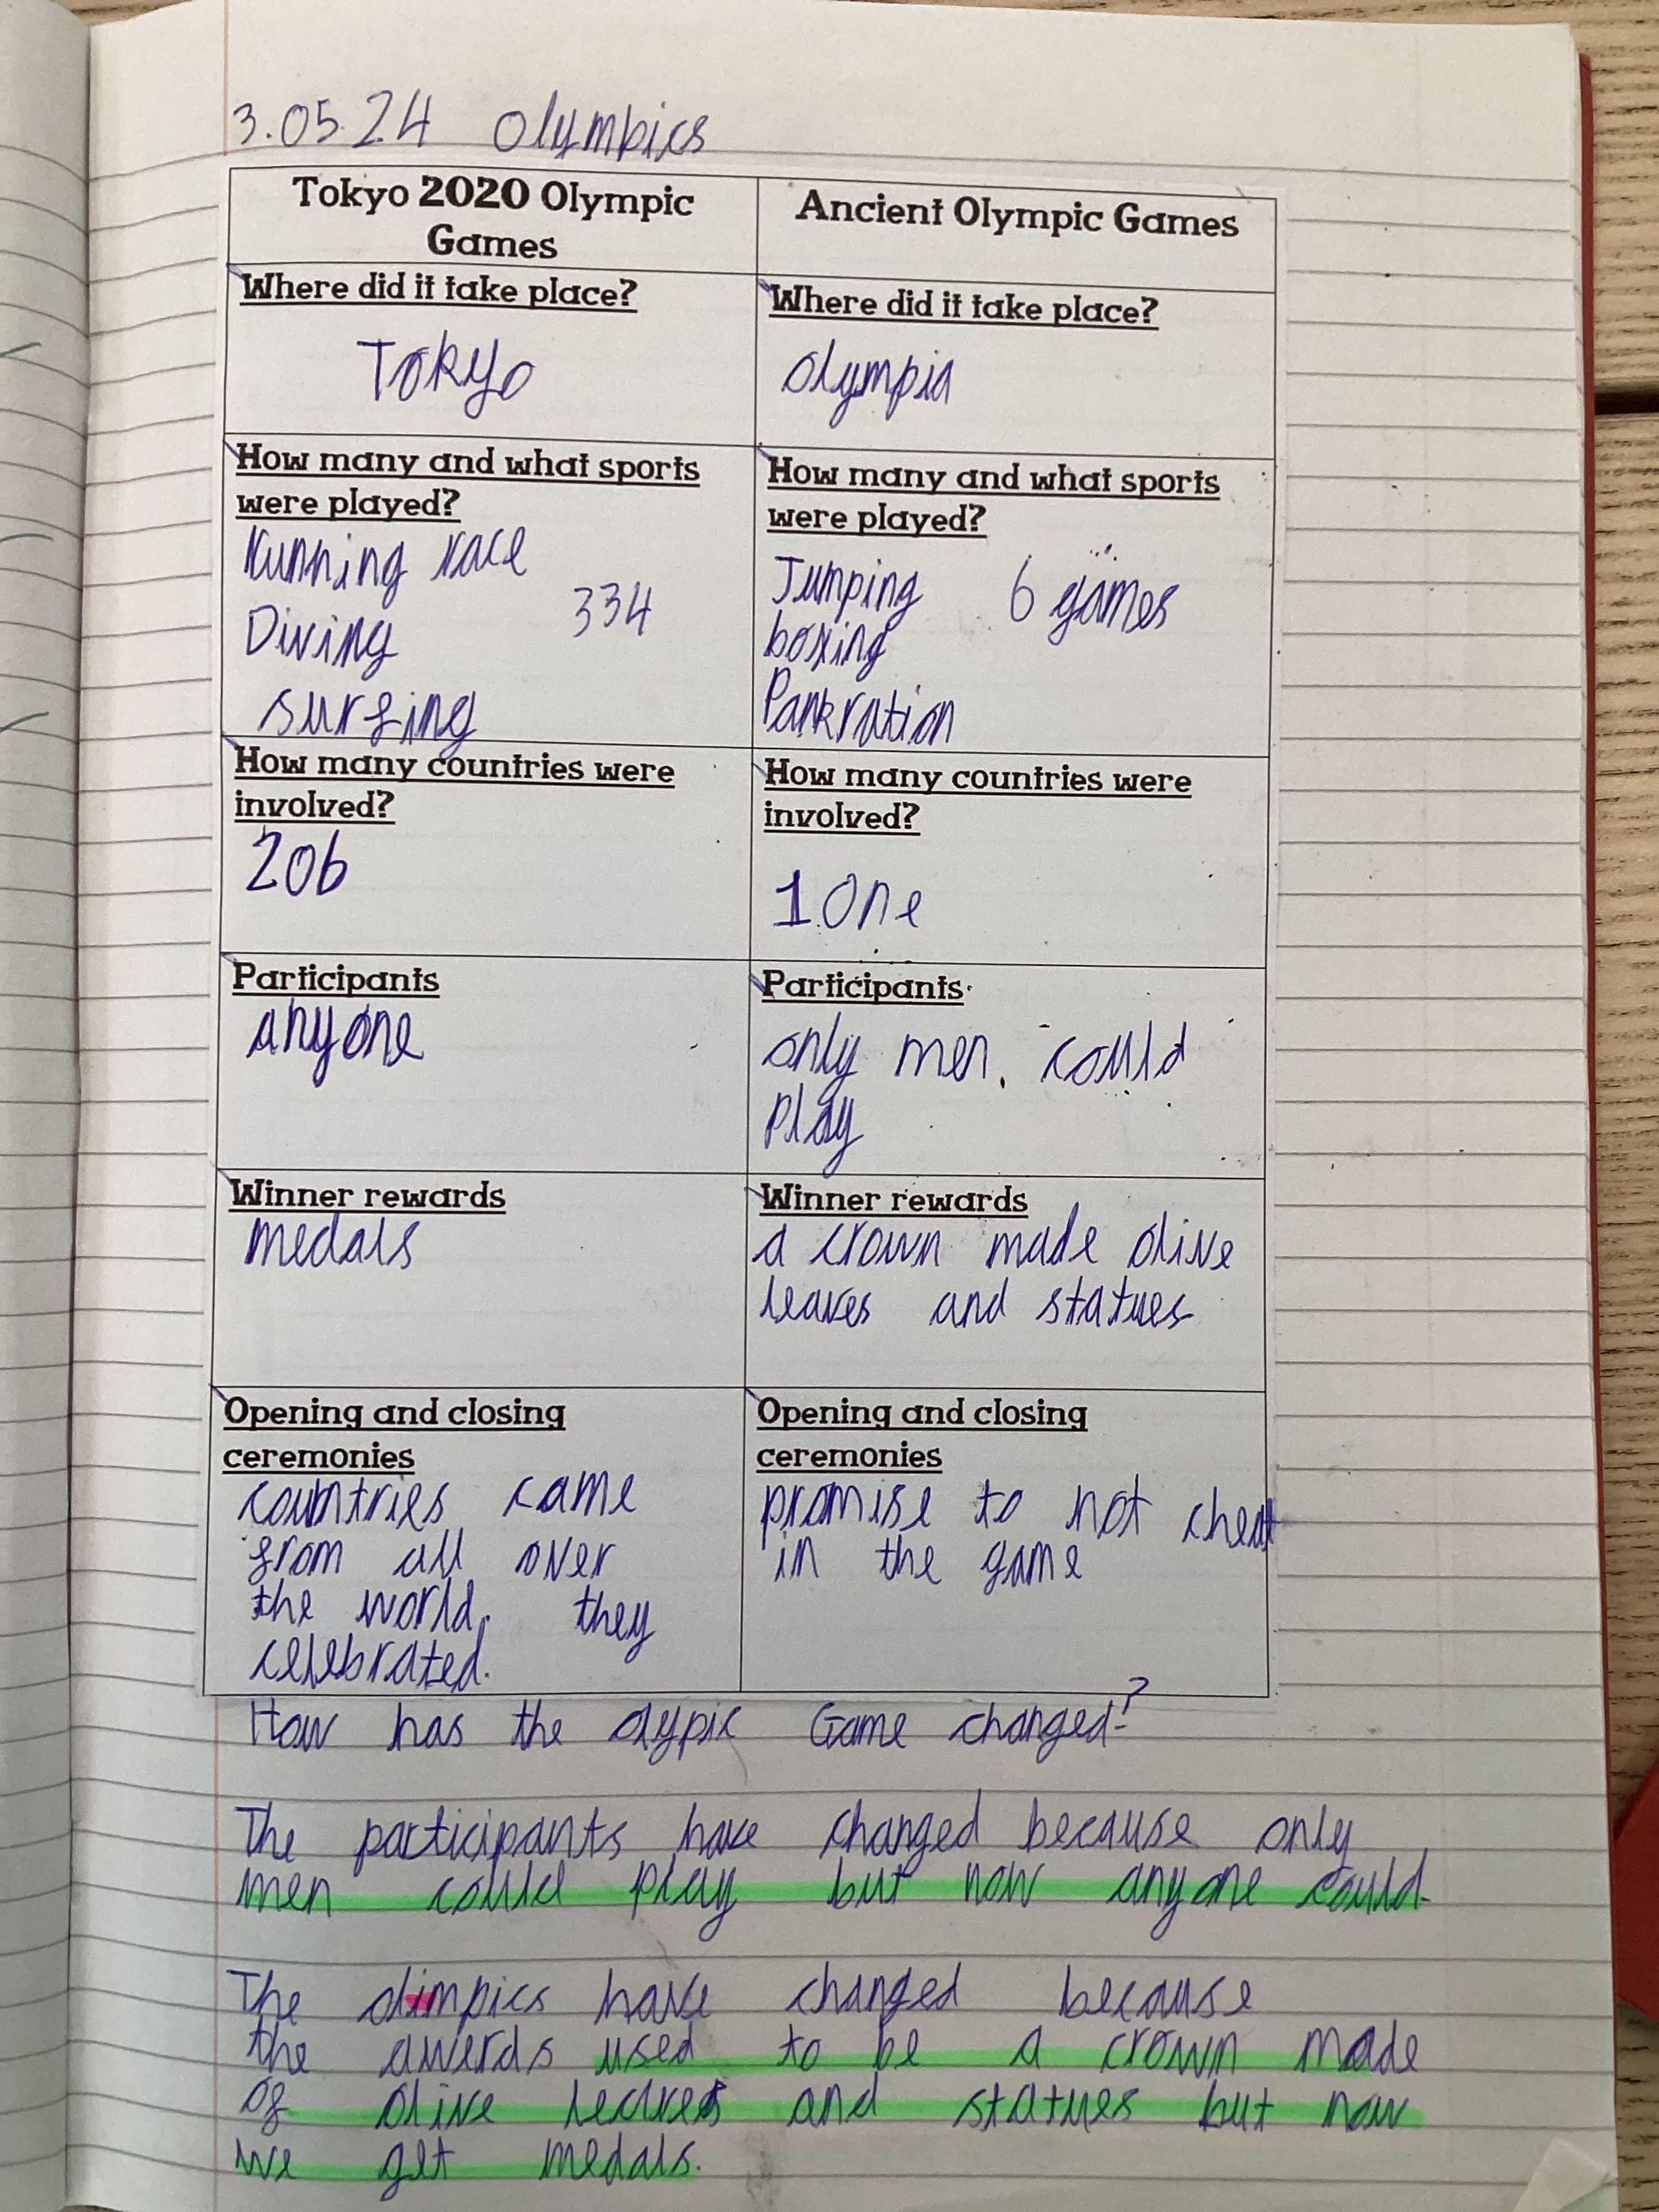 3.05.24 Olymbics
Tokyo 2020 Olympic
Games
Ancient Olympic Games
Where did it take place?
Tokyo
Where did it take place?
Olympia
How many and what sports
were played?
Running race
334
Diving
surfing
How many and what sports
were played?
Jumping 6 games
boxing
Pankration
How many countries were
involved?
206
How many countries were
involved?
1 One
Participants
anyone
Participants
only men could
play
Winner rewards
medals
Winner rewards
a crown made olive
leaves and statues
Opening and closing
ceremonies
countries came
from all over
the world. they
celebrated.
Opening and closing
ceremonies
promise to not cheat
in the game
How has the olypic Game changed?
The participants have changed because only
men could play but now anyone could.
The olimpics have changed because
the awerds used to be a crown made
of olive leaves and statues but now
we get medals.